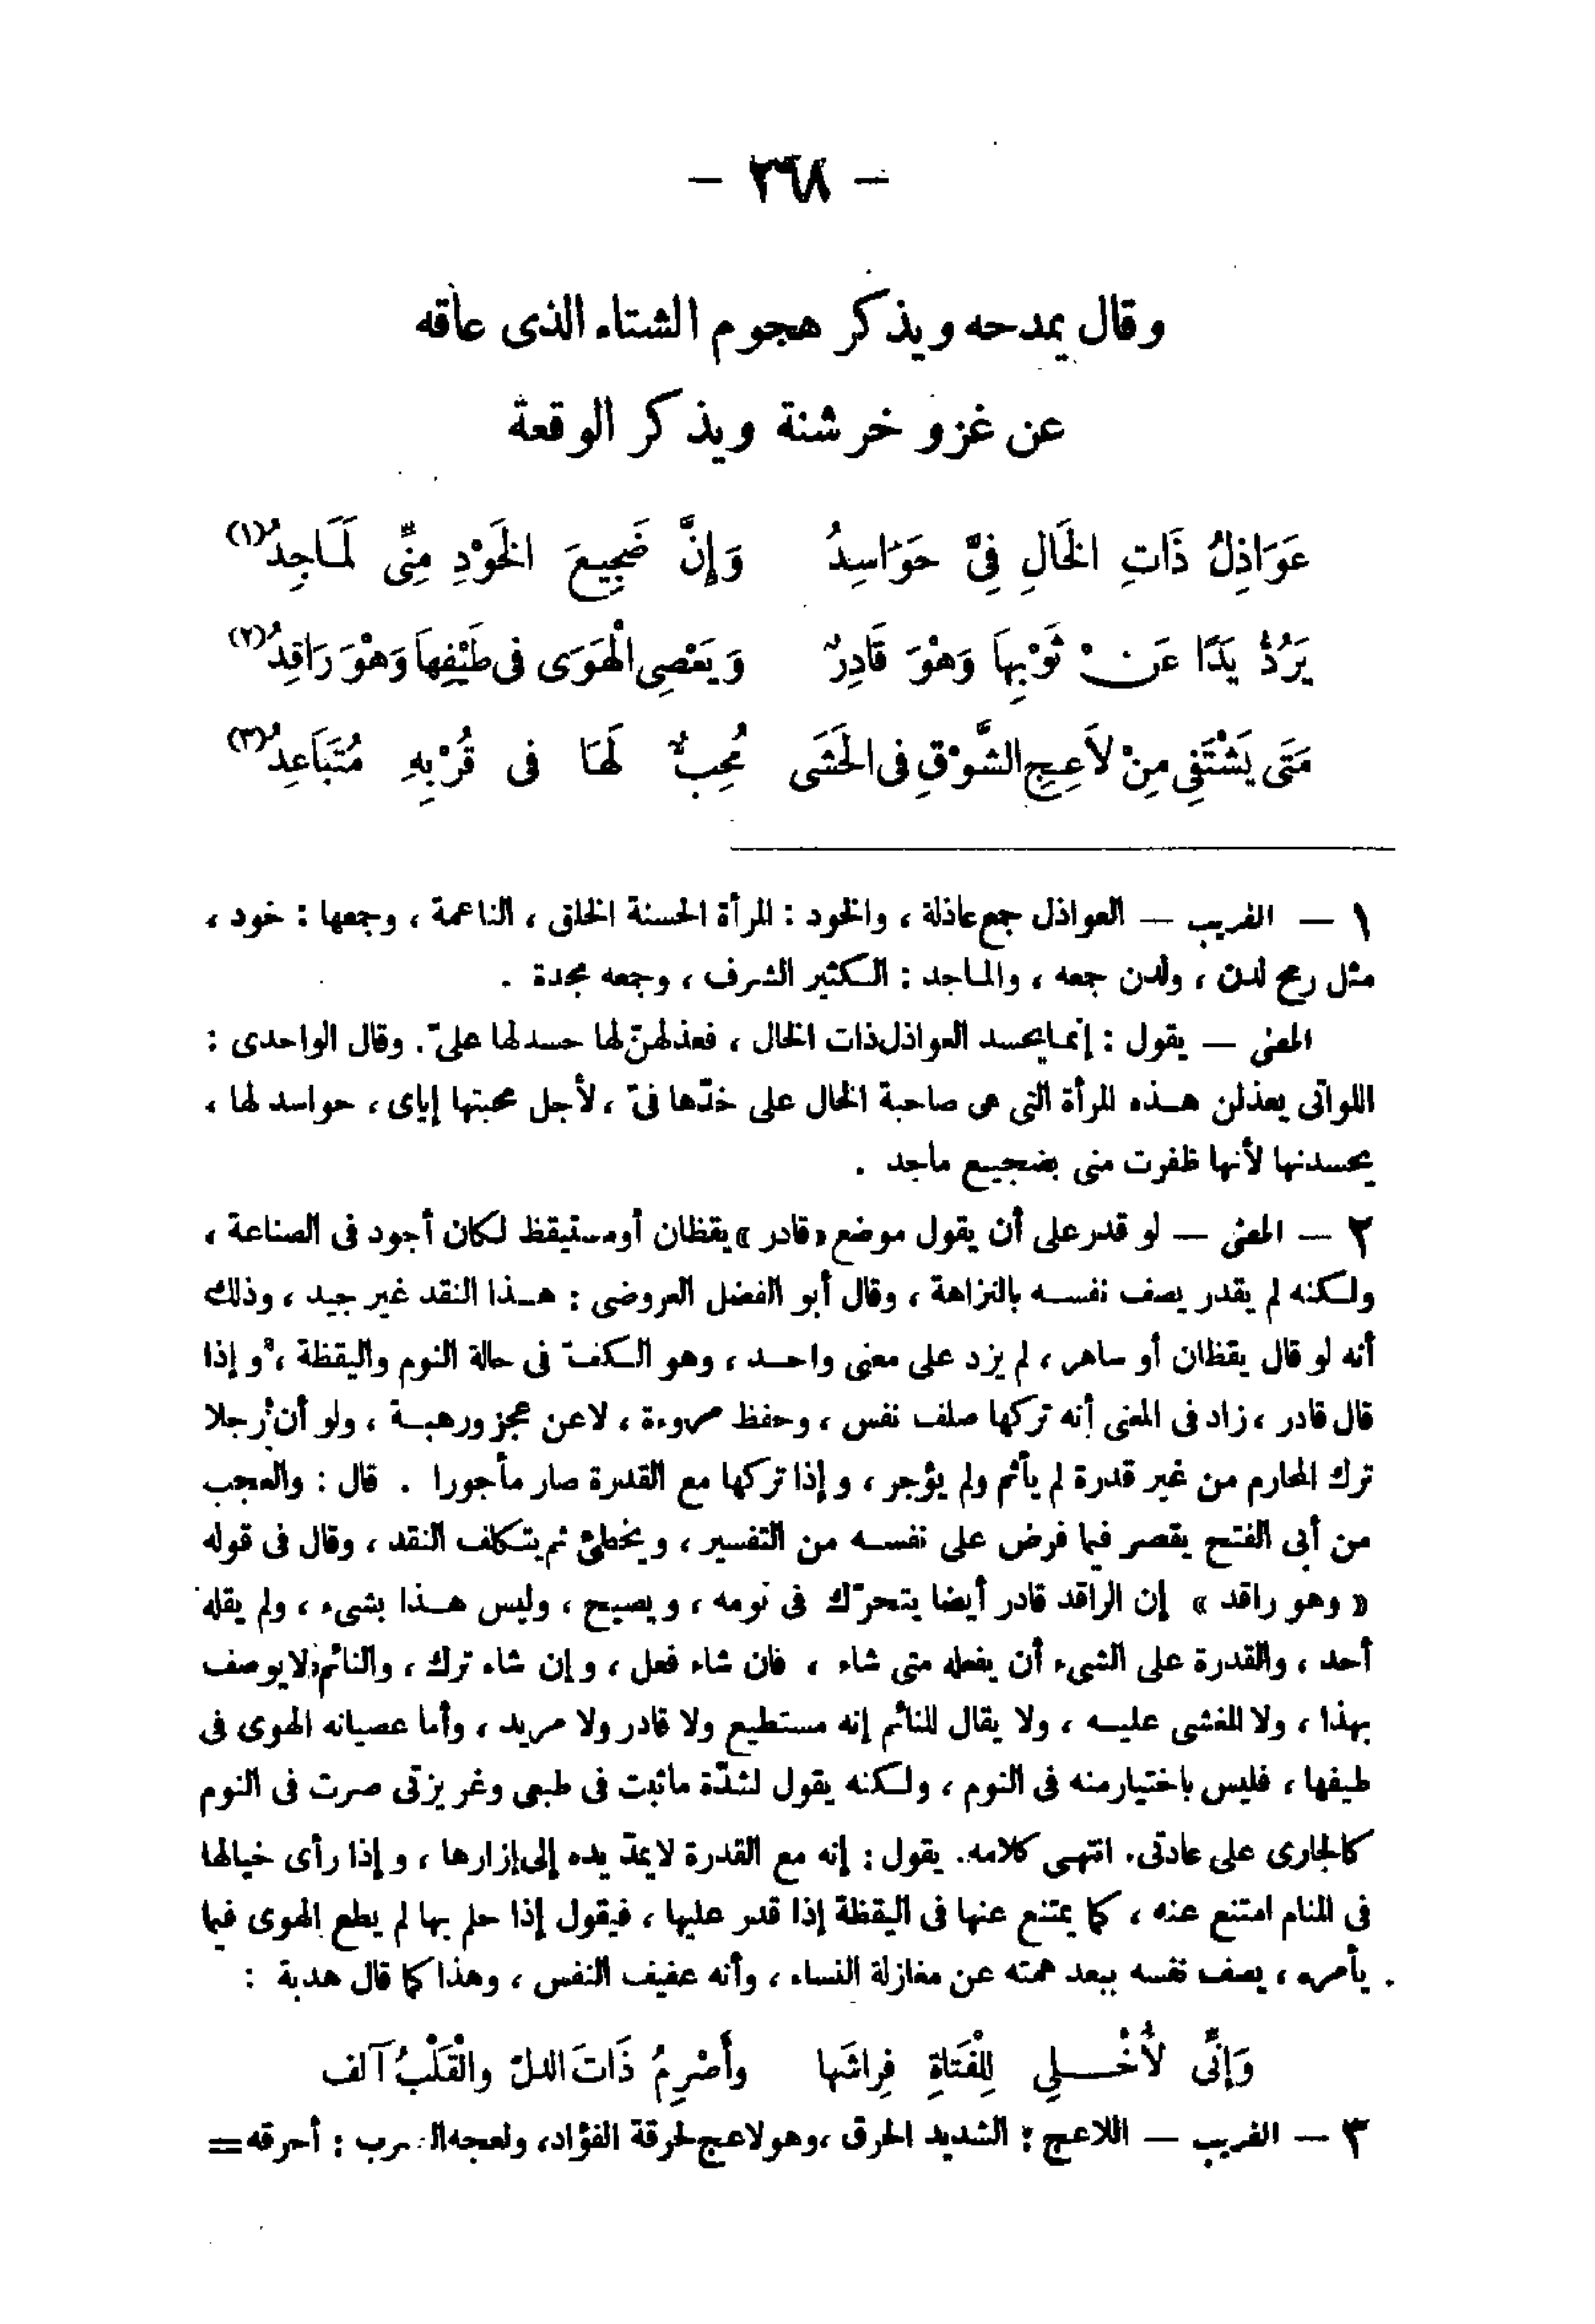 — ٢٦٨ —
وقال يمدحه ويذكر هجوم الشتاء الذى عاقه
عن غزو خرشنة ويذكر الوقعة
عَوَاذِلُ ذَاتِ الخَالِ فِىَّ حَوَاسِدُ وَإِنَّ ضَجِيعَ الخَوْدِ مِنِّى لَمَاجِدُ (١)
يَرُدُّ يَدًا عَنْ ثَوْبِهَا وَهْوَ قَادِرٌ وَيَعْصِى الْهَوَى فى طَيْفِهَا وَهْوَ رَاقِدُ (٢)
مَتَى يَشْتَفِى مِنْ لاَعِجِ الشَّوْقِ فى الحَشَى مُحِبٌّ لَهَا فى قُرْبِهِ مُتَبَاعِدُ (٣)
١ — الغريب — العواذل جمع عاذلة ، والخود : المرأة الحسنة الخلق ، الناعمة ، وجمعها : خود ،
مثل رمح لدن ، ولدن جمعه ، والماجد : الكثير الشرف ، وجمعه مجدة .
المعنى — يقول : إنما يحسد العواذل ذات الخال ، فعذلهنّ لها حسد لها علىّ . وقال الواحدى :
اللواتى يعذلن هذه المرأة التى هى صاحبة الخال على خدّها فىّ ، لأجل محبتها إياى ، حواسد لها ،
يحسدنها لأنها ظفرت منى بضجيع ماجد .
٢ — المعنى — لو قدر على أن يقول موضع «قادر» يقظان أو مستيقظ لكان أجود فى الصناعة ،
ولكنه لم يقدر يصف نفسه بالنزاهة ، وقال أبو الفضل العروضى : هذا النقد غير جيد ، وذلك
أنه لو قال يقظان أو ساهر ، لم يزد على معنى واحد ، وهو الكفّ فى حالة النوم واليقظة ، وإذا
قال قادر ، زاد فى المعنى أنه تركها صلف نفس ، وحفظ مروءة ، لا عن عجز ورهبة ، ولو أن رجلا
ترك المحارم من غير قدرة لم يأثم ولم يؤجر ، وإذا تركها مع القدرة صار مأجورا . قال : والعجب
من أبى الفتح يقصر فيما فرض على نفسه من التفسير ، ويخطئ ثم يتكلف النقد ، وقال فى قوله
« وهو راقد » إن الراقد قادر أيضا يتحرّك فى نومه ، ويصيح ، وليس هذا بشىء ، ولم يقله
أحد ، والقدرة على الشىء أن يفعله متى شاء ، فان شاء فعل ، وإن شاء ترك ، والنائم لا يوصف
بهذا ، ولا المغشى عليه ، ولا يقال للنائم إنه مستطيع ولا قادر ولا مريد ، وأما عصيانه الهوى فى
طيفها ، فليس باختيار منه فى النوم ، ولكنه يقول لشدّة ما ثبت فى طبعى وغريزتى صرت فى النوم
كالجارى على عادتى . انتهى كلامه . يقول : إنه مع القدرة لا يمدّ يده إلى إزارها ، وإذا رأى خيالها
فى المنام امتنع عنه ، كما يمتنع عنها فى اليقظة إذا قدر عليها ، فيقول إذا حلم بها لم يطع الهوى فيما
يأمره ، يصف نفسه ببعد همته عن مغازلة النساء ، وأنه عفيف النفس ، وهذا كما قال هدبة :
وَإِنِّى لَأُخْلِى لِلْفَتَاةِ فِرَاشَها وأَصْرِمُ ذَاتَ الدلّ والْقَلْبُ آلف
٣ — الغريب — اللاعج : الشديد الحرق ، وهو لاعج لحرقة الفؤاد ، ولعجه الضرب : أحرقه =